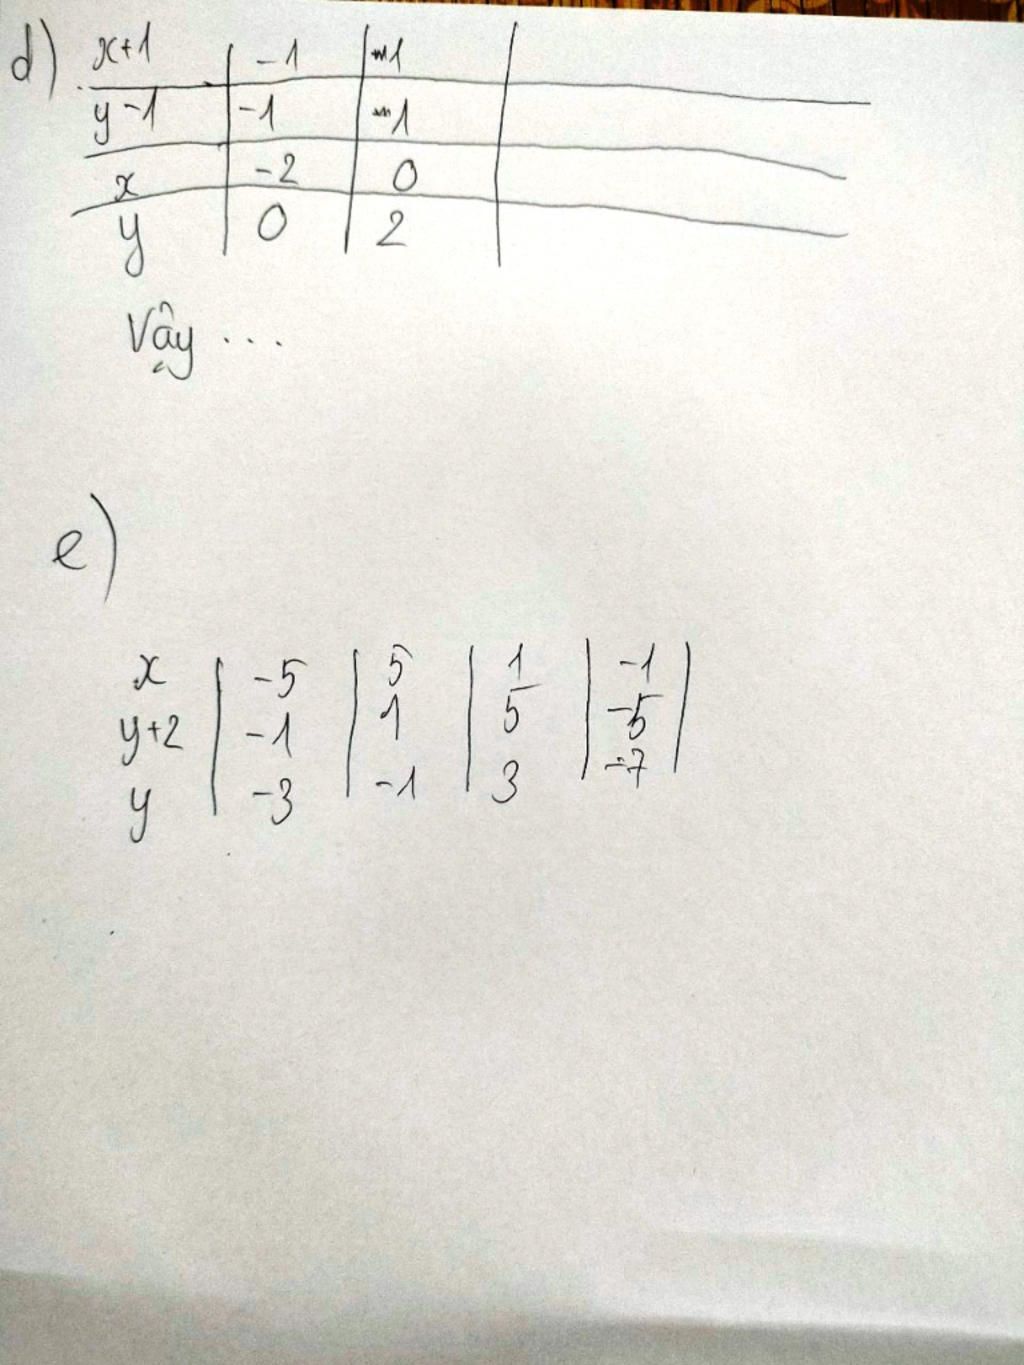 d) x+1 | -1 | 1 |
y-1 | -1 | 1 |
x | -2 | 0 |
y | 0 | 2 |
Vậy ...
e)
x | -5 | 5 | 1 | -1 |
y+2 | -1 | 1 | 5 | -5 |
y | -3 | -1 | 3 | -7 |